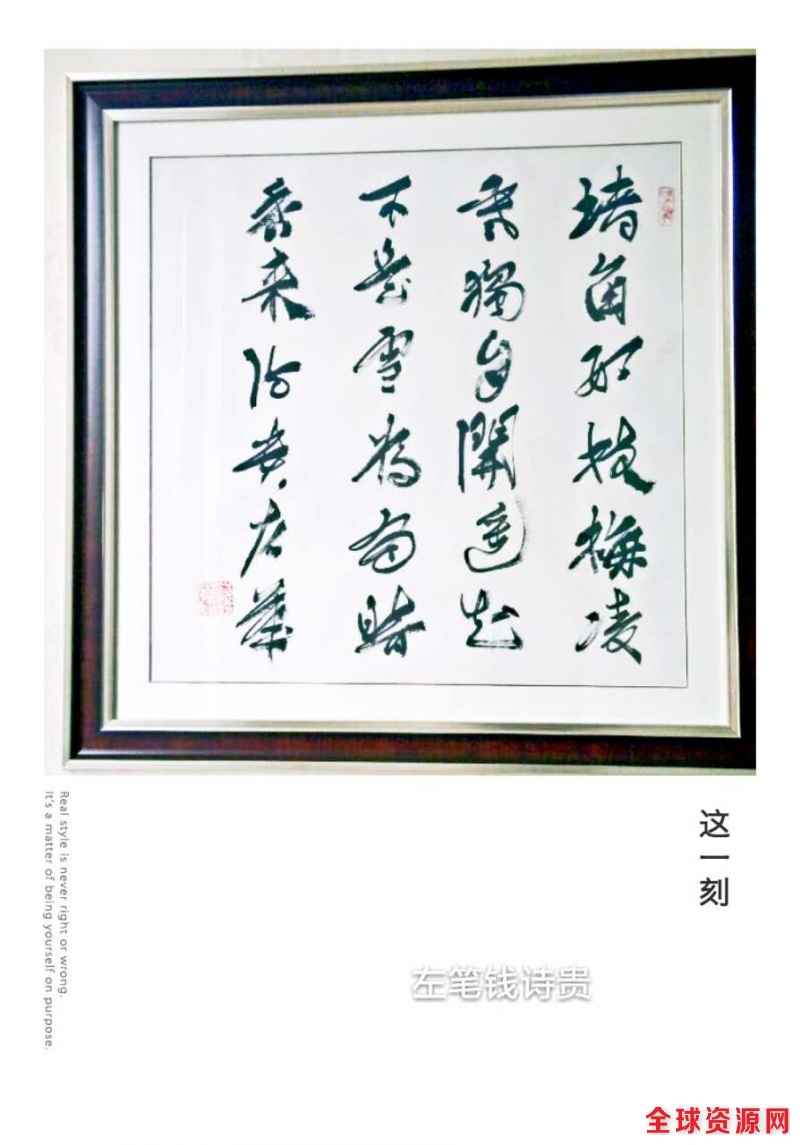 墙角数枝梅凌
寒獨自開遥知
不是雪為有暗
香来诗贵左筆
这一刻
Real style is never right or wrong.
It's a matter of being yourself on purpose.
左笔钱诗贵
全球资源网